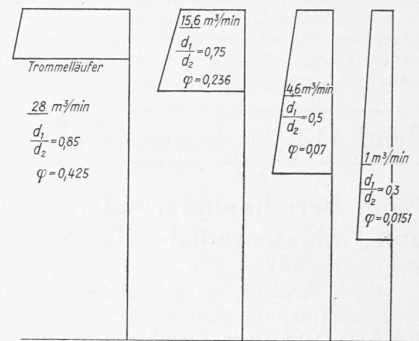 Trommelläufer
28 m³/min
d₁/d₂ = 0,85
φ = 0,425
15,6 m³/min
d₁/d₂ = 0,75
φ = 0,236
4,6 m³/min
d₁/d₂ = 0,5
φ = 0,07
1 m³/min
d₁/d₂ = 0,3
φ = 0,0151